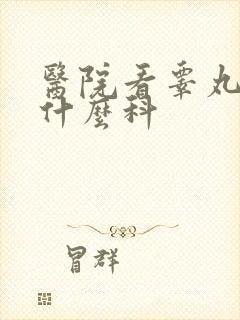 醫院看睾丸
什麼科
冒群